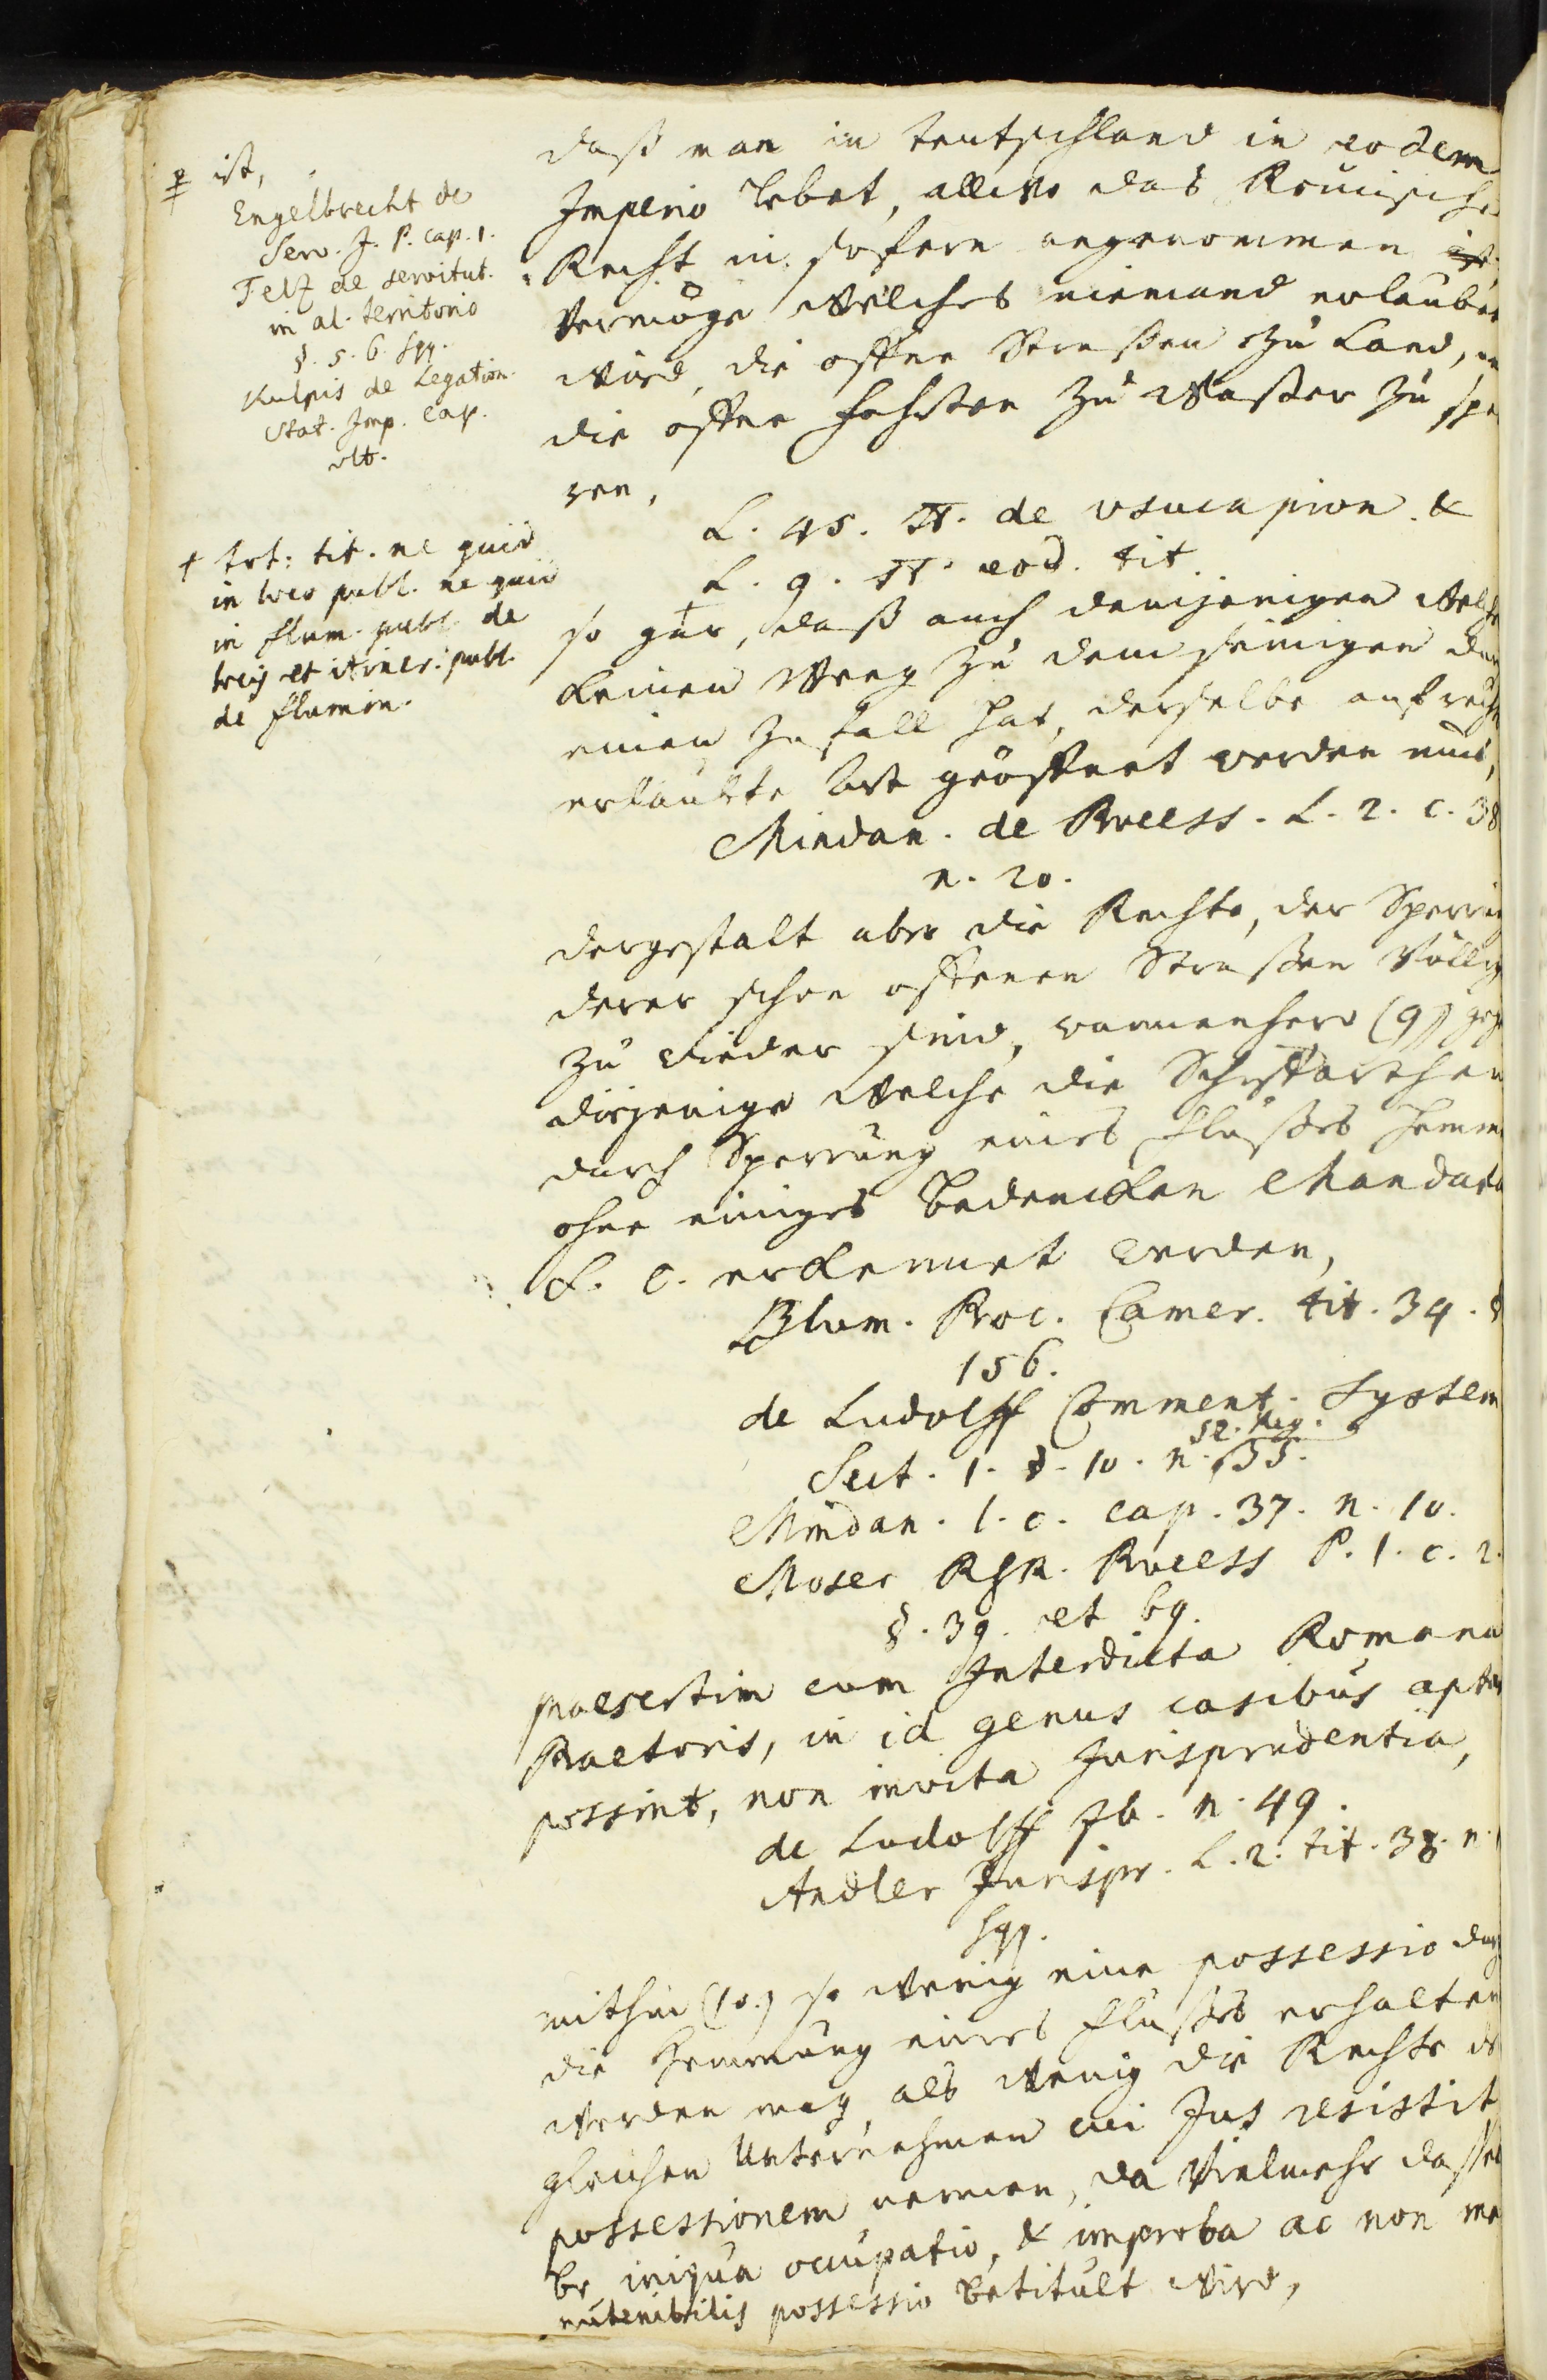 ist,
Engelbrecht de
Serv. J. P. cap. 1.
Feltz de servitut.
in al. territorio
§. 5. 6. sqq.
Kulpis de Legation.
Stat. Imp. cap.
ult.
† tot: tit. ne quid
in loco publ. ne quid
in flum. publ. de
locis et itiner: publ.
de flumin.
daß man in Teutschland in eodem
Imperio lebet, allwo das Römische
Recht in sofern angenommen ist
Vermöge Welches niemand erlaubet
Wird, die offne Straßen zu Land,
die offne Fahrten zu Waßer zu spe
ren,
L. 45. π. de usucapion. &
L. 9. π. eod. tit
so gar, daß auch demjenigen Welche
keinen Weeg zu dem seinigen durch
einen Zufall hat, derselbe auf recht
erlaubte Art geöffnet werden muß,
Mindan. de Process. L. 2. c. 38
n. 20.
dergestalt aber die Rechte, der Sperrung
derer schon offenen Straßen Völlig
zu wieder sind, dannenhero (9) gegen
diejenige Welche die Schiffarthen
durch Sperrung eines Flußes hemmen
ohne einiges Bedencken Mandata
S. C. erkennet werden,
Blum. Proc. Camer. tit. 34. §
156.
de Ludolff Comment. System
Sect. 1. §. 10. n. 133.
52. Meg.
Mindan. l. c. cap. 37. n. 10.
Moser RHR. Process P. 1. c. 2.
§. 39. et 69.
praesertim cum Interdicta Romana
Praetoris, in id genus casibus aptari
possint, non invita Jurisprudentia,
de Ludolff Ib. n. 49.
Andler Jurispr. L. 2. tit. 38. n.
sqq.
mithin (10.) so Wenig eine possessio durch
die Hemmung eines Flußes erhalten
Werden mag, als Wenig die Rechte der
gleichen Unternehmen cui Jus resistit
possessionem nennen, da Vielmehr dassel
be iniqua occupatio, & improba ac non ma
nutenibilis possessio betitult Wird,